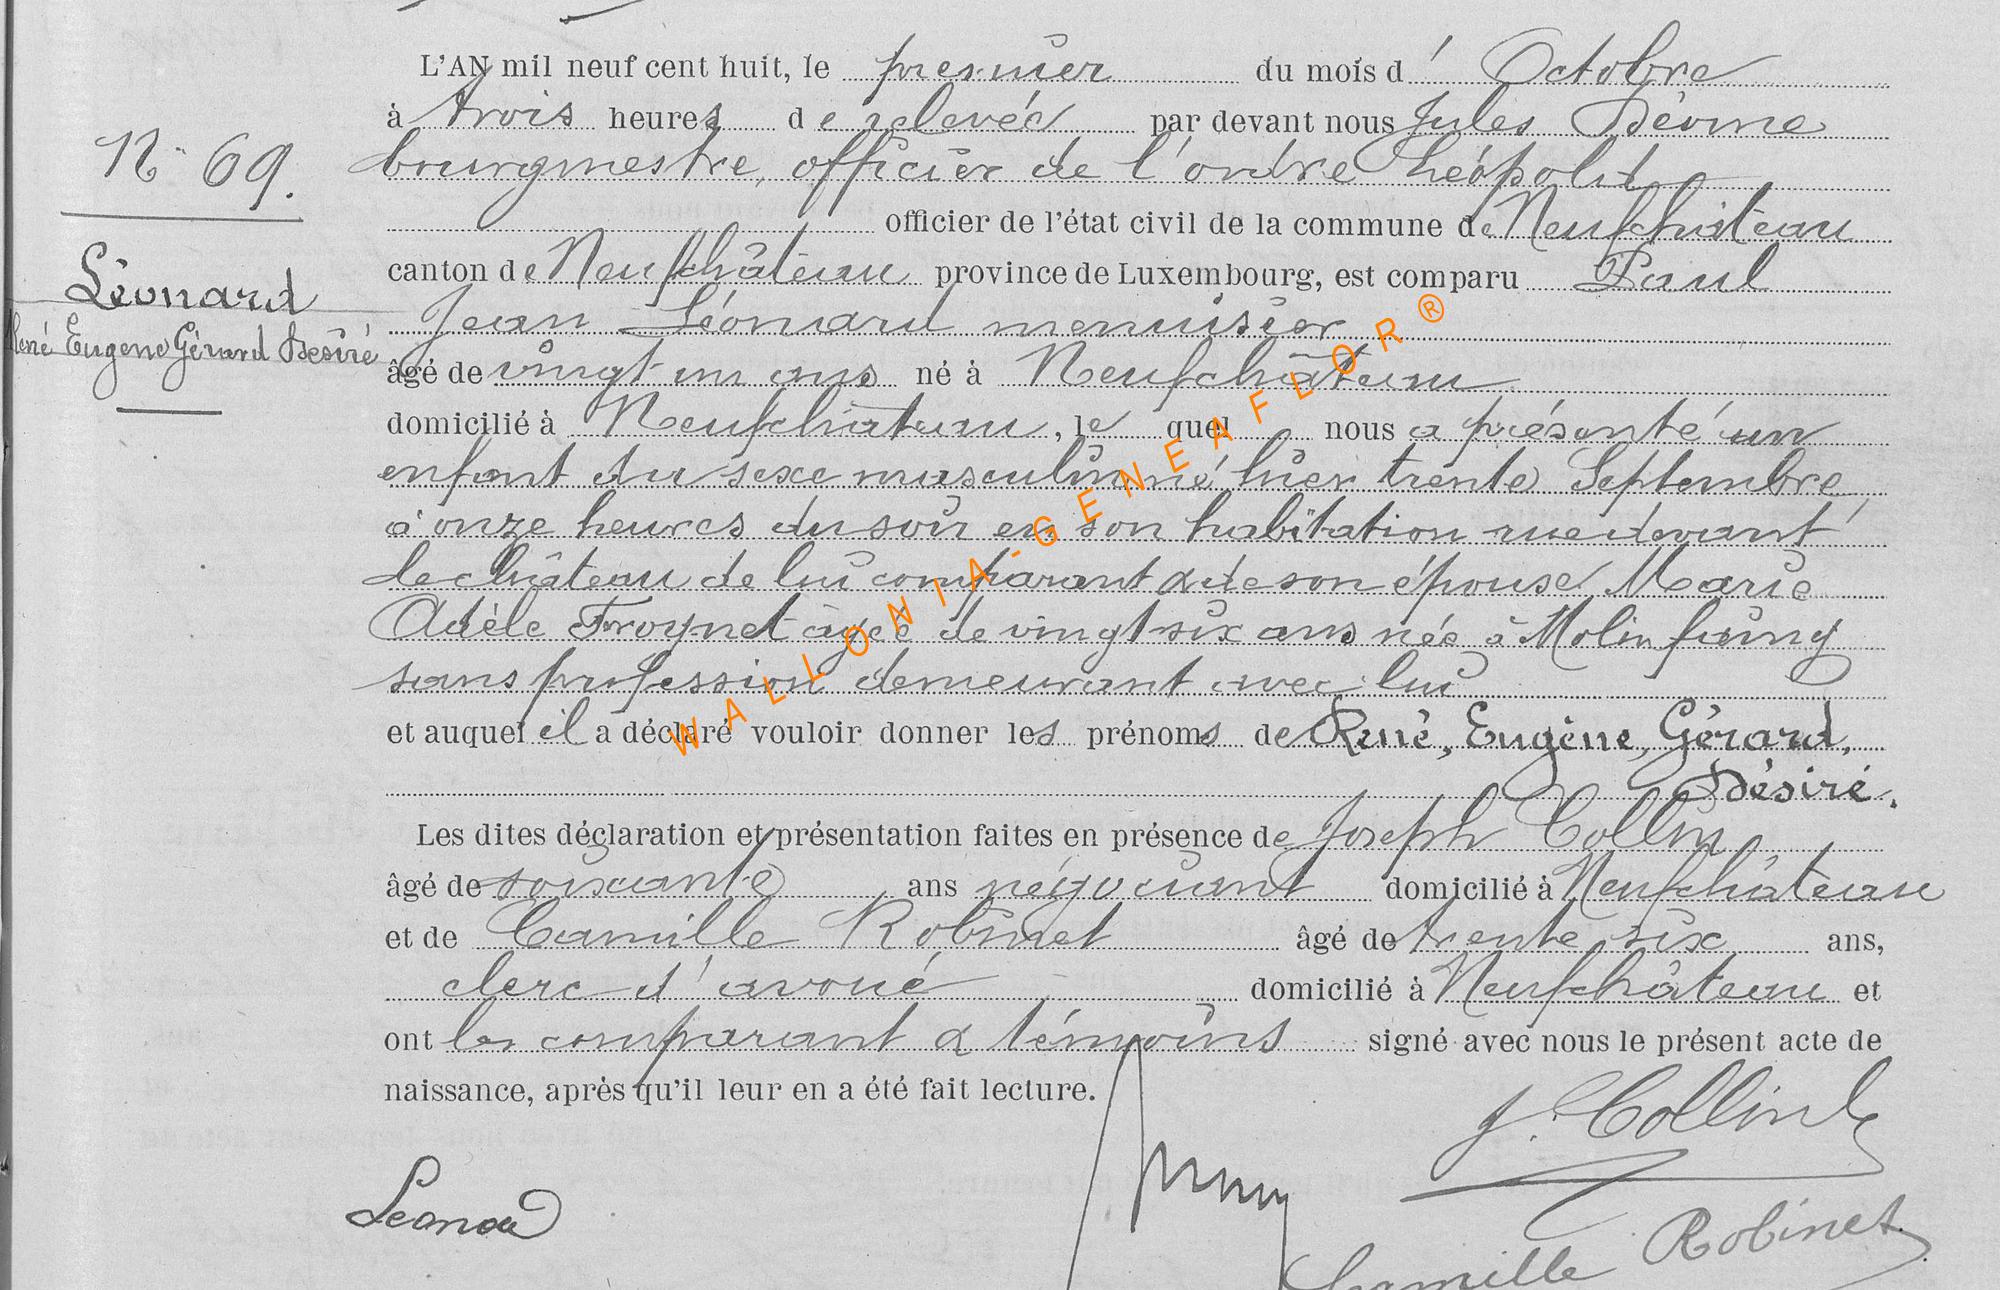 L'AN mil neuf cent huit, le premier du mois d' Octobre
à trois heures de relevée par devant nous Jules
bourgmestre, officier de l'ordre Léopold
officier de l'état civil de la commune de Neufchâteau
canton de Neufchâteau province de Luxembourg, est comparu Paul
Jean Léonard menuisier
âgé de vingt un ans né à Neufchâteau
domicilié à Neufchâteau, le quel nous a présenté un
enfant du sexe masculin né hier trente Septembre
à onze heures du soir en son habitation rue devant
le château de lui comparant & de son épouse Marie
Adèle Froynet âgée de vingt six ans née à Molinfaing
sans profession demeurant avec lui
et auquel il a déclaré vouloir donner les prénoms de René, Eugène, Gérard,
Désiré.
Les dites déclaration et présentation faites en présence de Joseph Collin
âgé de soixante ans négociant domicilié à Neufchâteau
et de Camille Robinet âgé de trente six ans,
clerc d'avoué domicilié à Neufchâteau et
ont les comparant & témoins signé avec nous le présent acte de
naissance, après qu'il leur en a été fait lecture.
N° 69.
Léonard
René Eugène Gérard Désiré
J. Collin
Léonard
Camille Robinet
WALLONIA-GENEAFLOR®